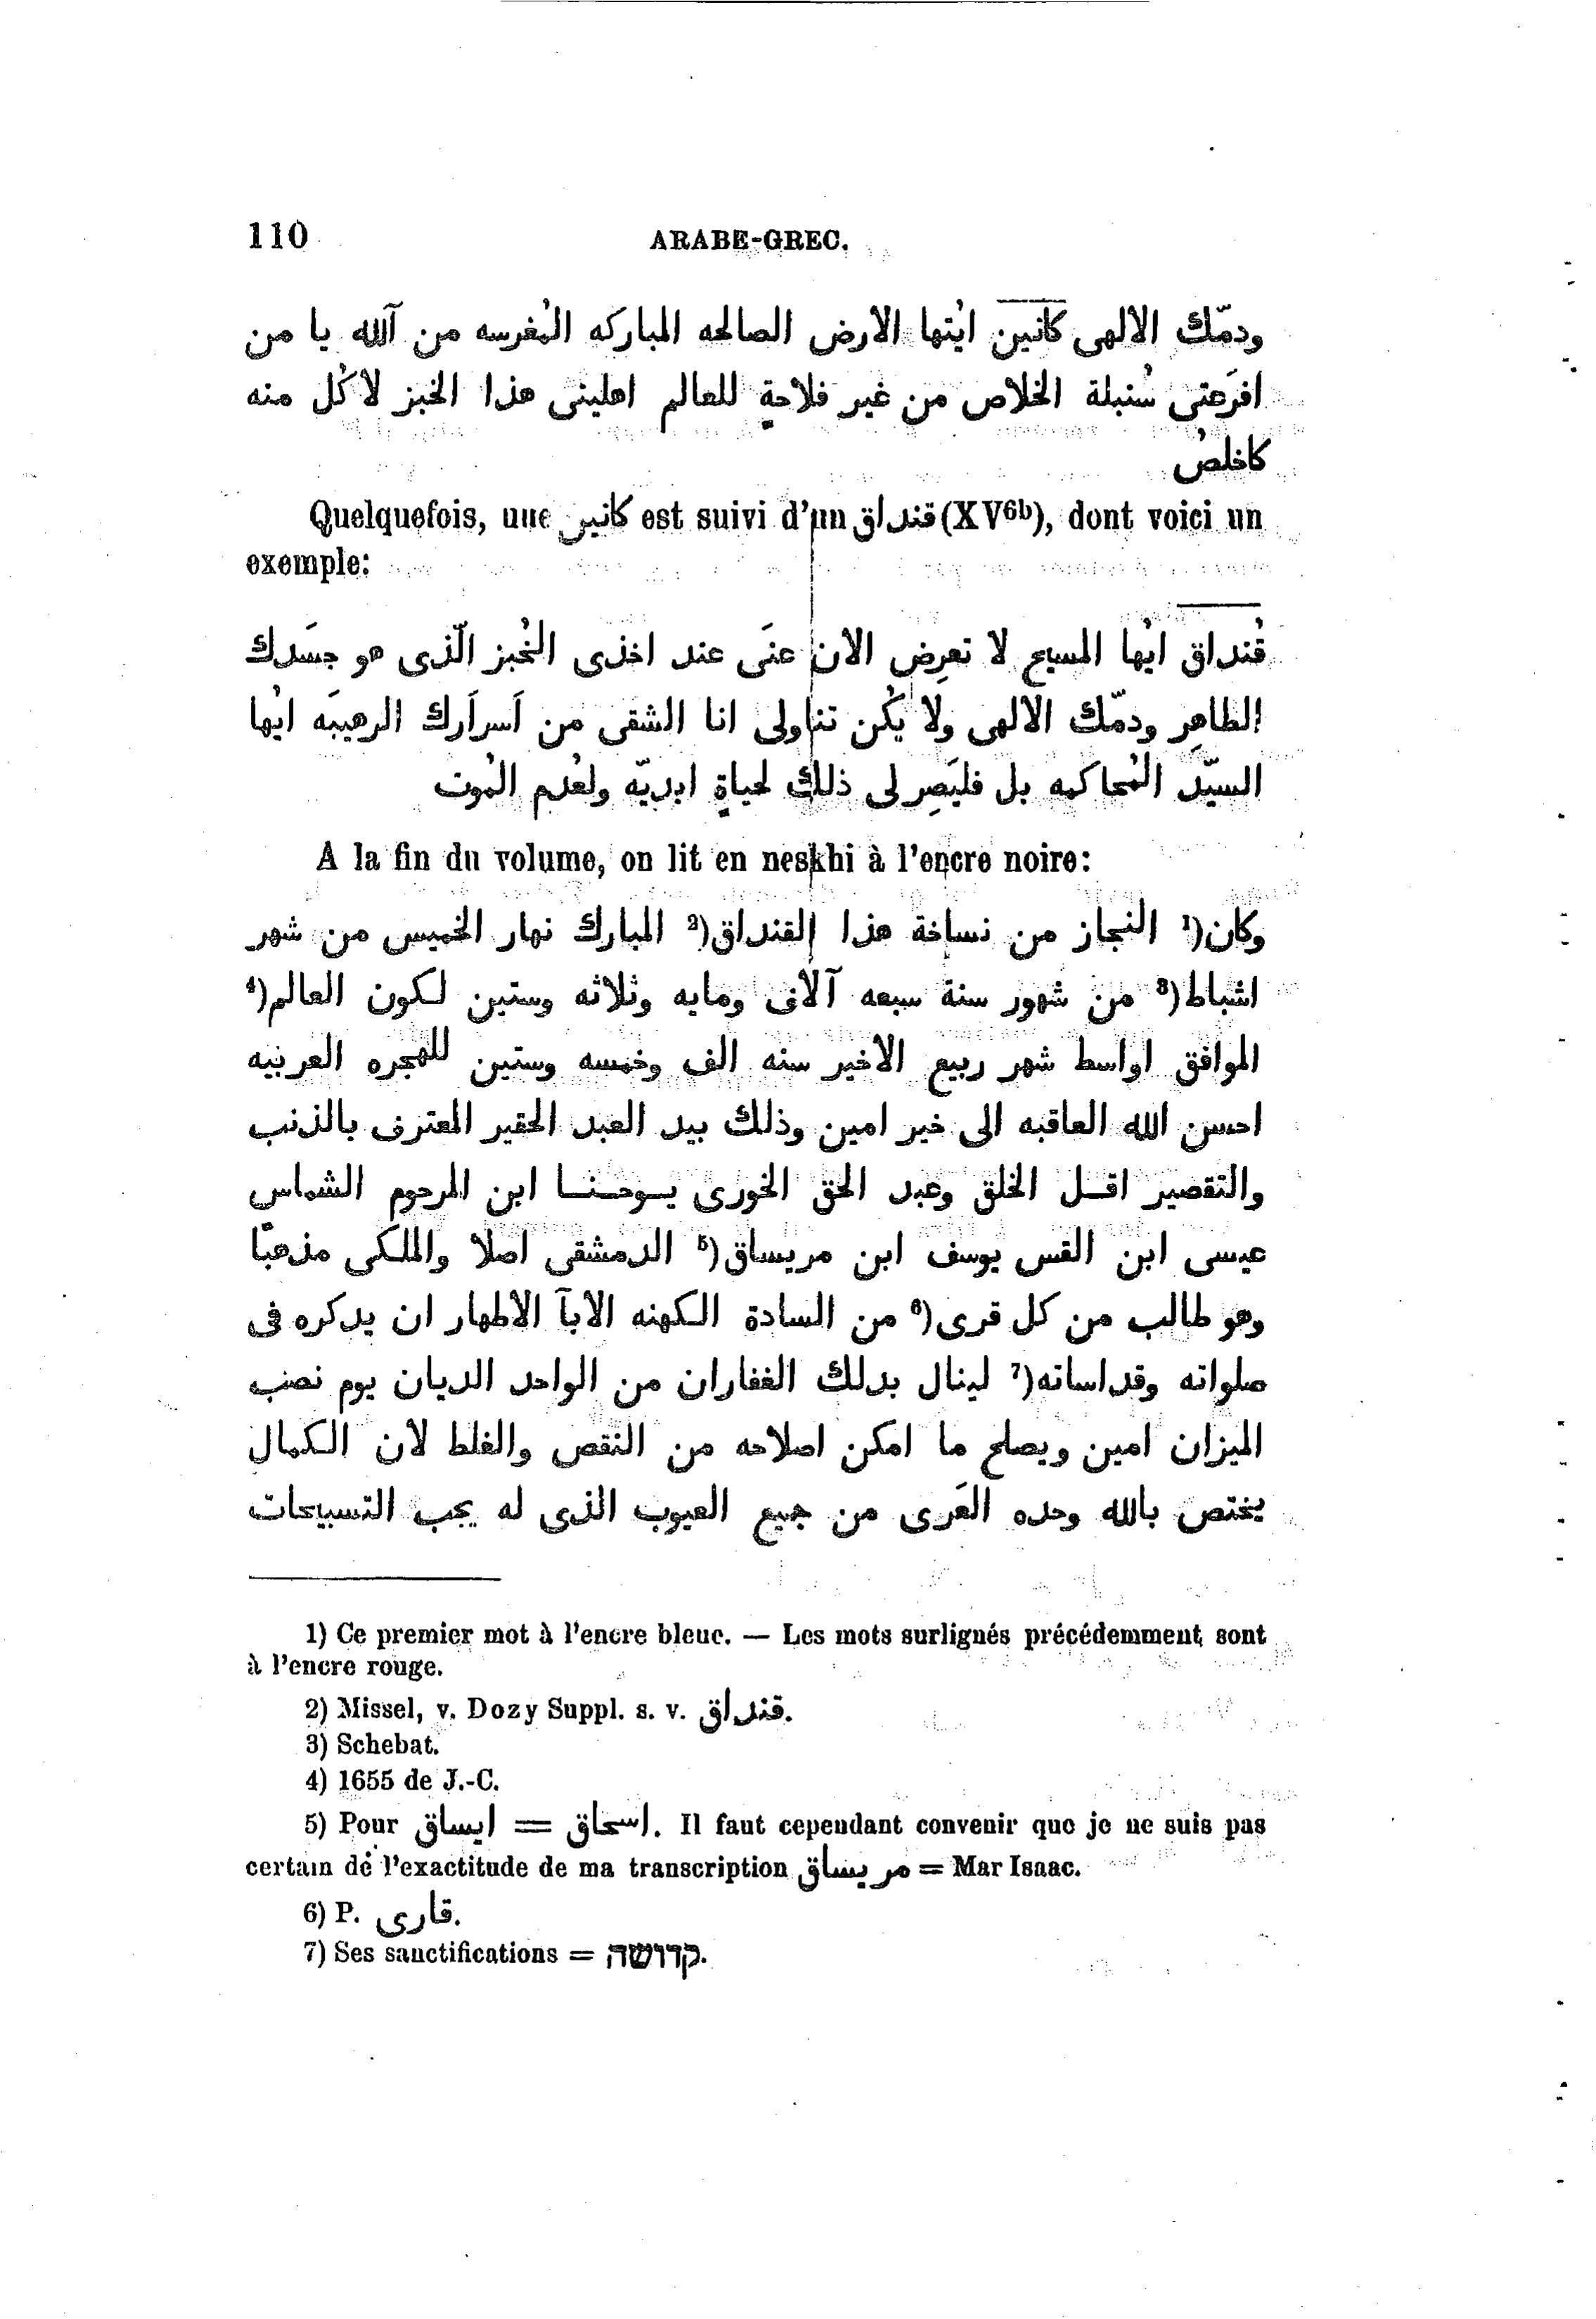 110
ARABE-GREC.
ودمّك الالهى كانين ايُتها الارض الصالحه المباركه المُغرسه من آلله يا من
افرَعتى سُنبلة الخلاص من غير فلاحةٍ للعالم اهلينى هذا الخبز لاكُل منه
كاخلصُ
Quelquefois, une كانين est suivi d'un قنداق (XV6b), dont voici un
exemple:
قُنداق ايُها المسيح لا تعرِض الان عنَى عند اخذى الخُبز الّذى هو جسَدك
الطاهِر ودمّك الالهى ولا يكُن تناولى انا الشقى من اَسراَرك الرهيبَه ايُها
السيّد المُحاكمه بل فليَصِر لى ذلك لحياةٍ ابديّه ولعُدم المُوت
A la fin du volume, on lit en neskhi à l'encre noire:
وكان(1 النجاز من نساخة هذا القنداق(2 المبارك نهار الخميس من شهر
اشباط(3 من شهور سنة سبعه آلاف ومايه وثلاثه وستين لكون العالم(4
الموافق اواسط شهر ربيع الاخير سنه الف وخمسه وستين للهجره العربيه
احسن الله العاقبه الى خير امين وذلك بيد العبد الحقير المعترف بالذنب
والتقصير اقل الخلق وعبد الحق الخورى يوحنا ابن المرحوم الشماس
عيسى ابن القس يوسف ابن مريساق(5 الدمشقى اصلا والملكى مذهبًا
وهو طالب من كل قرى(6 من السادة الكهنه الابآ الاطهار ان يدكره فى
صلواته وقداساته(7 لينال بدلك الغفاران من الواحد الديان يوم نصب
الميزان امين ويصلح ما امكن اصلاحه من النقص والغلط لان الكمال
يختص بالله وحده العَرى من جميع العيوب الذى له يجب التسبيحات
1) Ce premier mot à l'encre bleue. — Les mots surlignés précédemment sont
à l'encre rouge.
2) Missel, v. Dozy Suppl. s. v. قنداق.
3) Schebat.
4) 1655 de J.-C.
5) Pour ايساق = اسحاق. Il faut cependant convenir que je ne suis pas
certain de l'exactitude de ma transcription مر يساق = Mar Isaac.
6) P. قارى.
7) Ses sanctifications = קדושה.